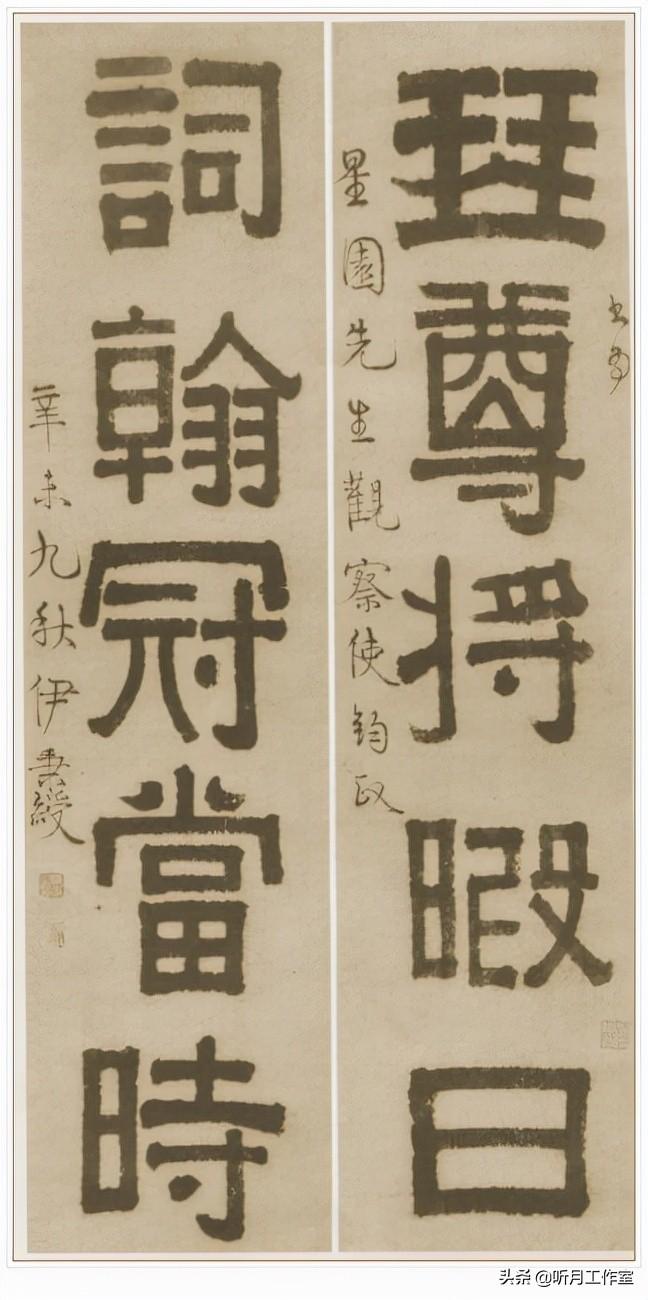 書為
琴尊将暇日
星園先生觀察使鈞政
詞翰冠當時
辛未九秋伊秉綬
头条 @听月工作室